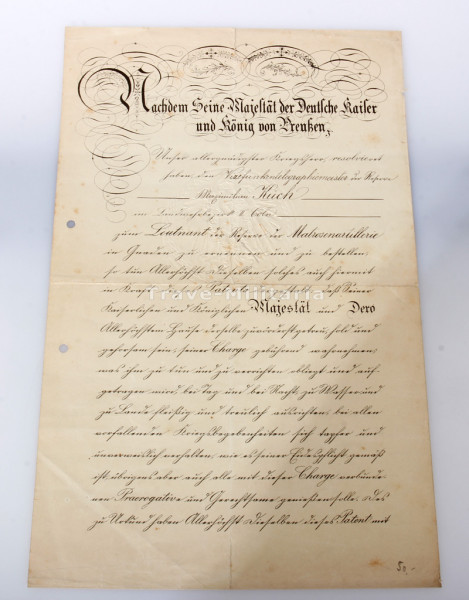 Nachdem Seine Majestät der Deutsche Kaiser
und König von Preußen,
Unser allergnädigster Kriegsherr, resolviret
haben den Vizefeuerwerks der Reserve
Maximilian Kuch
im Landwehrbezirk I Cöln
zum Leutnant der Reserve der Matrosenartillerie
in Gnaden zu ernennen und zu bestellen
so thun Allerhöchst Dieselben solches auch hiermit
in Kraft dieses Patents dergestalt, daß Seiner
Trave-Militaria
Kaiserlichen und Königlichen Majestät und Dero
Allerhöchstem Hause derselbe zuvörderst getreu, hold und
gehorsam sein, seiner Charge gebührend wahrnehmen,
was ihm zu thun und zu verrichten obliegt und auf-
getragen wird, bei Tag und bei Nacht, zu Wasser und
zu Lande fleißig und treulich ausrichten, bei allen
vorfallenden Kriegsbegebenheiten sich tapfer und
unverweislich verhalten, wie es seiner Eidespflicht gemäß
ist, übrigens aber auch alle mit dieser Charge verbunde-
nen Praerogative und Gerechtsame genießen solle. Des
zu Urkund haben Allerhöchst Dieselben dieses Patent mit
50,-